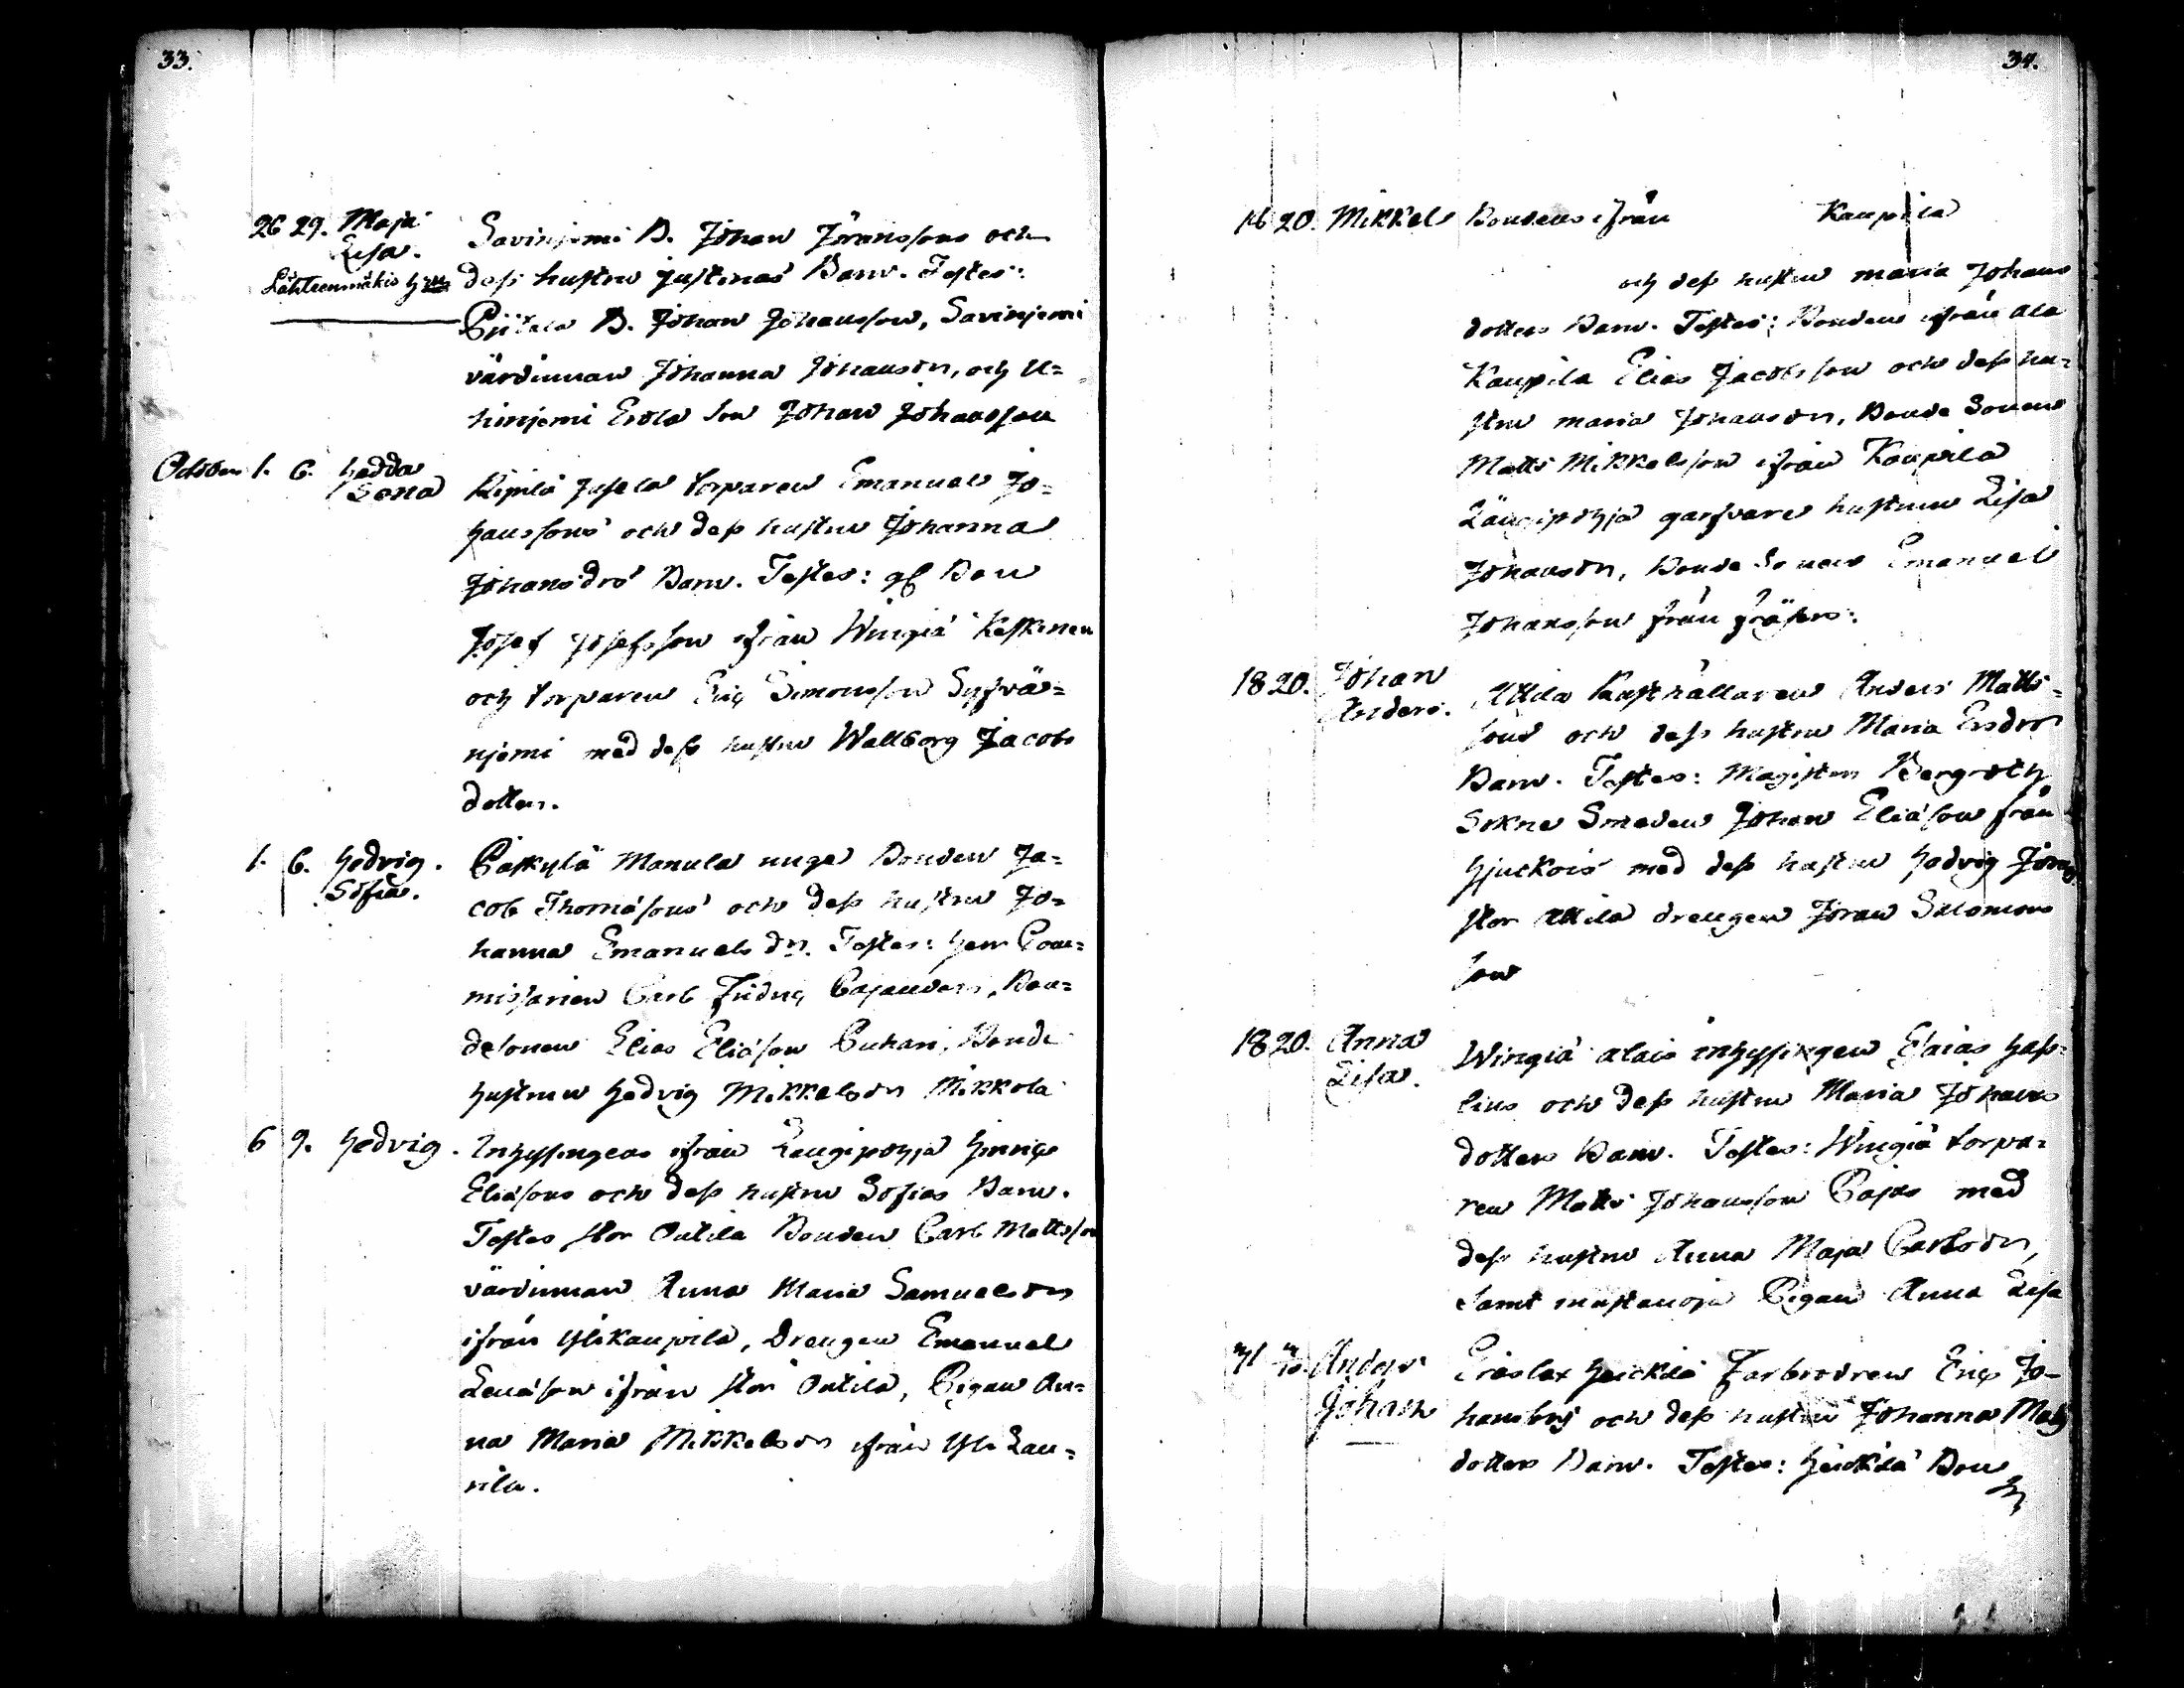 33.
26 29. Maja Lisa. Savinjemi B. Johan Jöranssons och
Lähteenmäkis dess hustru Justinas Barn. Testes:
B. Johan Johansson, Savinjemi
värdinnan Johanna Johansdr, och U=
hinjemi Erola son Johan Johansson
October 1. 6. Hedda Sona torparen Emanuel Jo=
hanssons och dess hustru Johanna
Johansdrs Barn. Testes: Bon
Josef Josefsson ifrån Wingiä Keskinen
och torparen Eric Simonsson Syfvä=
njemi med dess hustru Wallborg Jacobs
dotter.
1. 6. Hedvig Sofia. Paskylä Manula unga Bonden Ja=
cob Thomasons och dess hustru Jo=
hanna Emanuels dr. Testes: Herr Com=
missarien Carl Fridric Cajanders, Bon=
desonen Elias Eliason Cuhari, Bonde
hustrun Hedvig Mikkelsdr Mikkola
6 9. Hedvig. Inhysingens ifrån Langipohja Hinric
Eliasons och dess hustru Sofias Barn.
Testes stor Outila Bonden Carl Mattsson
värdinnan Anna Maria Samuelsdr
ifrån Ylikaupila, Drengen Emanuel
ifrån stor Outila, Pigan An=
na Maria Mikkelsdr ifrån Yli Lau=
rila.
34.
16 20. Mikkel Bondens ifrån Kaupila
och dess hustru Maria Johans
dotters Barn. Testes: Bonden ifrån Ala
Kaupila Elias Jacobsson och dess hu=
stru Maria Johansdr, Bonde Sonen
Matts Mikkelsson ifrån Kaupila
Längipohja garfvare hustrun Lisa
Johansdr, Bonde Sonen Emanuel
Johansson från
18 20. Johan Anders. Attila Rusthållaren Anders Matts=
sons och dess hustru Maria Ersdrs
Barn. Testes: Magister Bergroth
Sokne Smeden Johan Eliason från
Hjuckois med dess hustru Hedvig
stor Attila drengen Jöran Salomons
son
18 20. Anna Lisa. Wingiä alais inhysingen Esaias Hass=
lius och dess hustru Maria Johans
dotters Barn. Testes: Wingiä torpa=
ren Matts Johansson Pajas med
dess hustru Anna Maja Carlsdr,
samt mustanoja Pigan Anna Lisa
Anders Johan Heickilä Farbrodren Eric Jo=
hanssons och dess hustru Johanna Matts
dotters Barn. Testes: Heickilä Bon